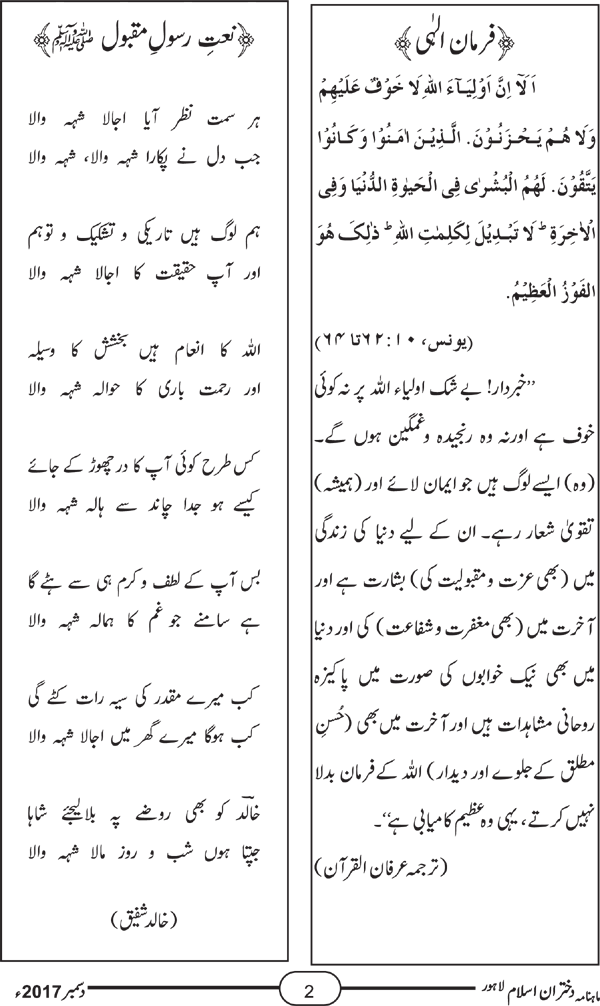 ﴿فرمان الٰہی﴾
اَلَآ اِنَّ اَوْلِیَآءَ اللهِ لَا خَوْفٌ عَلَیْهِمْ
وَلَا هُمْ یَحْزَنُوْنَ. الَّذِیْنَ اٰمَنُوْا وَکَانُوْا
یَتَّقُوْنَ. لَهُمُ الْبُشْرٰی فِی الْحَیٰوةِ الدُّنْیَا وَفِی
الْاٰخِرَةِ ؕ لَا تَبْدِیْلَ لِکَلِمٰتِ اللهِ ؕ ذٰلِکَ هُوَ
الْفَوْزُ الْعَظِیْمُ.
(یونس، ۱۰: ۶۲ تا ۶۴)
’’خبردار! بے شک اولیاء اللہ پر نہ کوئی
خوف ہے اورنہ وہ رنجیدہ وغمگین ہوں گے۔
(وہ) ایسے لوگ ہیں جو ایمان لائے اور (ہمیشہ)
تقویٰ شعار رہے۔ ان کے لیے دنیا کی زندگی
میں (بھی عزت ومقبولیت کی) بشارت ہے اور
آخرت میں (بھی مغفرت وشفاعت) کی اور دنیا
میں بھی نیک خوابوں کی صورت میں پاکیزہ
روحانی مشاہدات ہیں اور آخرت میں بھی (حُسنِ
مطلق کے جلوے اور دیدار) اللہ کے فرمان بدلا
نہیں کرتے، یہی وہ عظیم کامیابی ہے‘‘۔
(ترجمہ عرفان القرآن)
﴿نعتِ رسولِ مقبول ﷺ﴾
ہر سمت نظر آیا اجالا شہہ والا
جب دل نے پکارا شہہ والا، شہہ والا
ہم لوگ ہیں تاریکی و تشکیک و توہم
اور آپ حقیقت کا اجالا شہہ والا
اللہ کا انعام ہیں بخشش کا وسیلہ
اور رحمت باری کا حوالہ شہہ والا
کس طرح کوئی آپ کا در چھوڑ کے جائے
کیسے ہو جدا چاند سے ہالہ شہہ والا
بس آپ کے لطف و کرم ہی سے ہٹے گا
ہے سامنے جو غم کا ہمالہ شہہ والا
کب میرے مقدر کی سیہ رات کٹے گی
کب ہوگا میرے گھر میں اجالا شہہ والا
خالدؔ کو بھی روضے پہ بلا لیجئے شاہا
جپتا ہوں شب و روز مالا شہہ والا
(خالد شفیق)
ماہنامہ دختران اسلام لاہور
2
دسمبر 2017ء